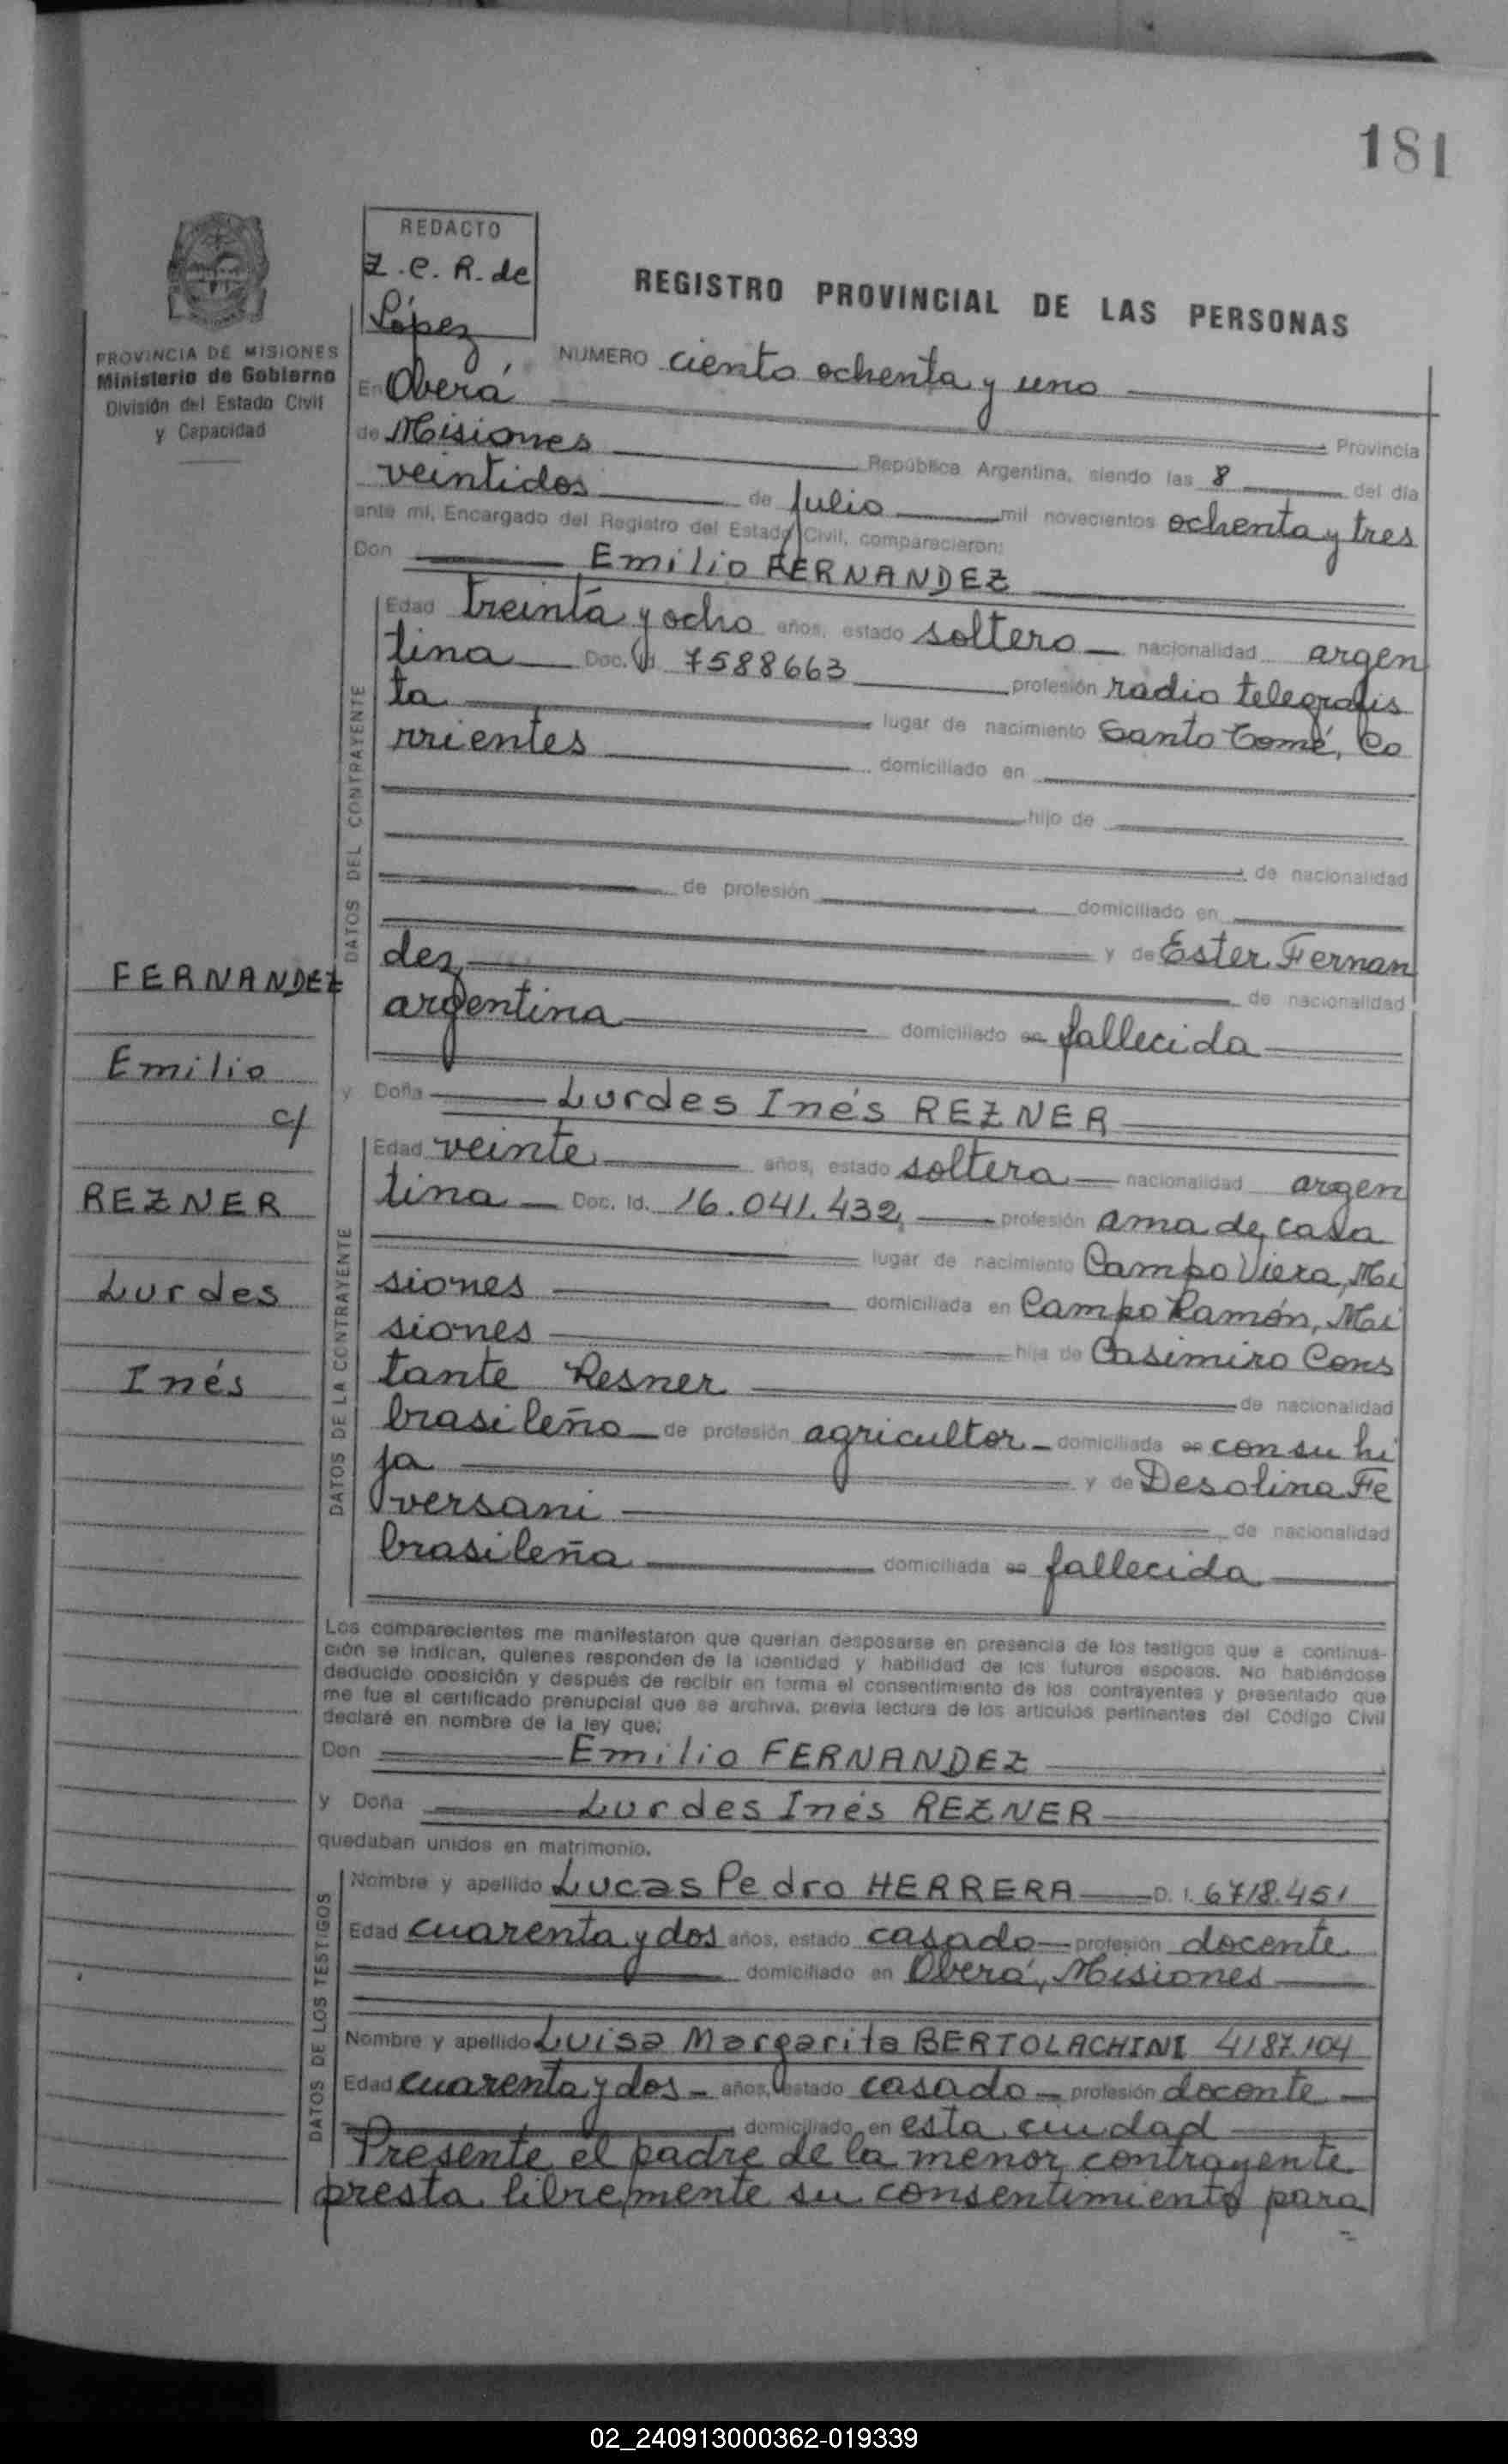 181
REDACTO
Z.C.R. de
López
REGISTRO PROVINCIAL DE LAS PERSONAS
PROVINCIA DE MISIONES
Ministerio de Gobierno
División del Estado Civil
y Capacidad
NUMERO ciento ochenta y uno
En Oberá
Provincia
de Misiones República Argentina, siendo las 8 del día
veintidos de julio mil novecientos ochenta y tres
ante mi, Encargado del Registro del Estado Civil, comparecieron:
Don Emilio FERNANDEZ
DATOS DEL CONTRAYENTE
Edad treinta y ocho años, estado soltero nacionalidad argen
tina Doc. Id. 7588663 profesión radio telegrafis
ta lugar de nacimiento Santo Tomé, Co
rrientes domiciliado en
hijo de
de nacionalidad
de profesión domiciliado en
y de Ester Fernan
dez de nacionalidad
argentina domiciliado en fallecida
FERNANDEZ
Emilio
c/
REZNER
Lurdes
Inés
y Doña Lurdes Inés REZNER
DATOS DE LA CONTRAYENTE
Edad veinte años, estado soltera nacionalidad argen
tina Doc. Id. 16.041.432 profesión ama de casa
lugar de nacimiento Campo Viera, Mi
siones domiciliada en Campo Ramón, Mi
siones hija de Casimiro Cons
tante Resner de nacionalidad
brasileño de profesión agricultor domiciliada en con su hi
ja y de Desolina Fe
versani de nacionalidad
brasileña domiciliada en fallecida
Los comparecientes me manifestaron que querían desposarse en presencia de los testigos que a continua-
ción se indican, quienes responden de la identidad y habilidad de los futuros esposos. No habiéndose
deducido oposición y después de recibir en forma el consentimiento de los contrayentes y presentado que
me fue el certificado prenupcial que se archiva, previa lectura de los artículos pertinentes del Código Civil
declaré en nombre de la ley que;
Don Emilio FERNANDEZ
y Doña Lurdes Inés REZNER
quedaban unidos en matrimonio.
DATOS DE LOS TESTIGOS
Nombre y apellido Lucas Pedro HERRERA D. I. 6718.451
Edad cuarenta y dos años, estado casado profesión docente
domiciliado en Oberá, Misiones
Nombre y apellido Luisa Margarita BERTOLACHINI 4187.104
Edad cuarenta y dos años, estado casado profesión docente
domiciliado en esta ciudad
Presente el padre de la menor contrayente
presta libremente su consentimiento para
02_240913000362-019339